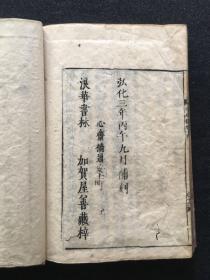 弘化三年丙午九月補刻
心齋橋通
浪華書林 加賀屋善藏梓